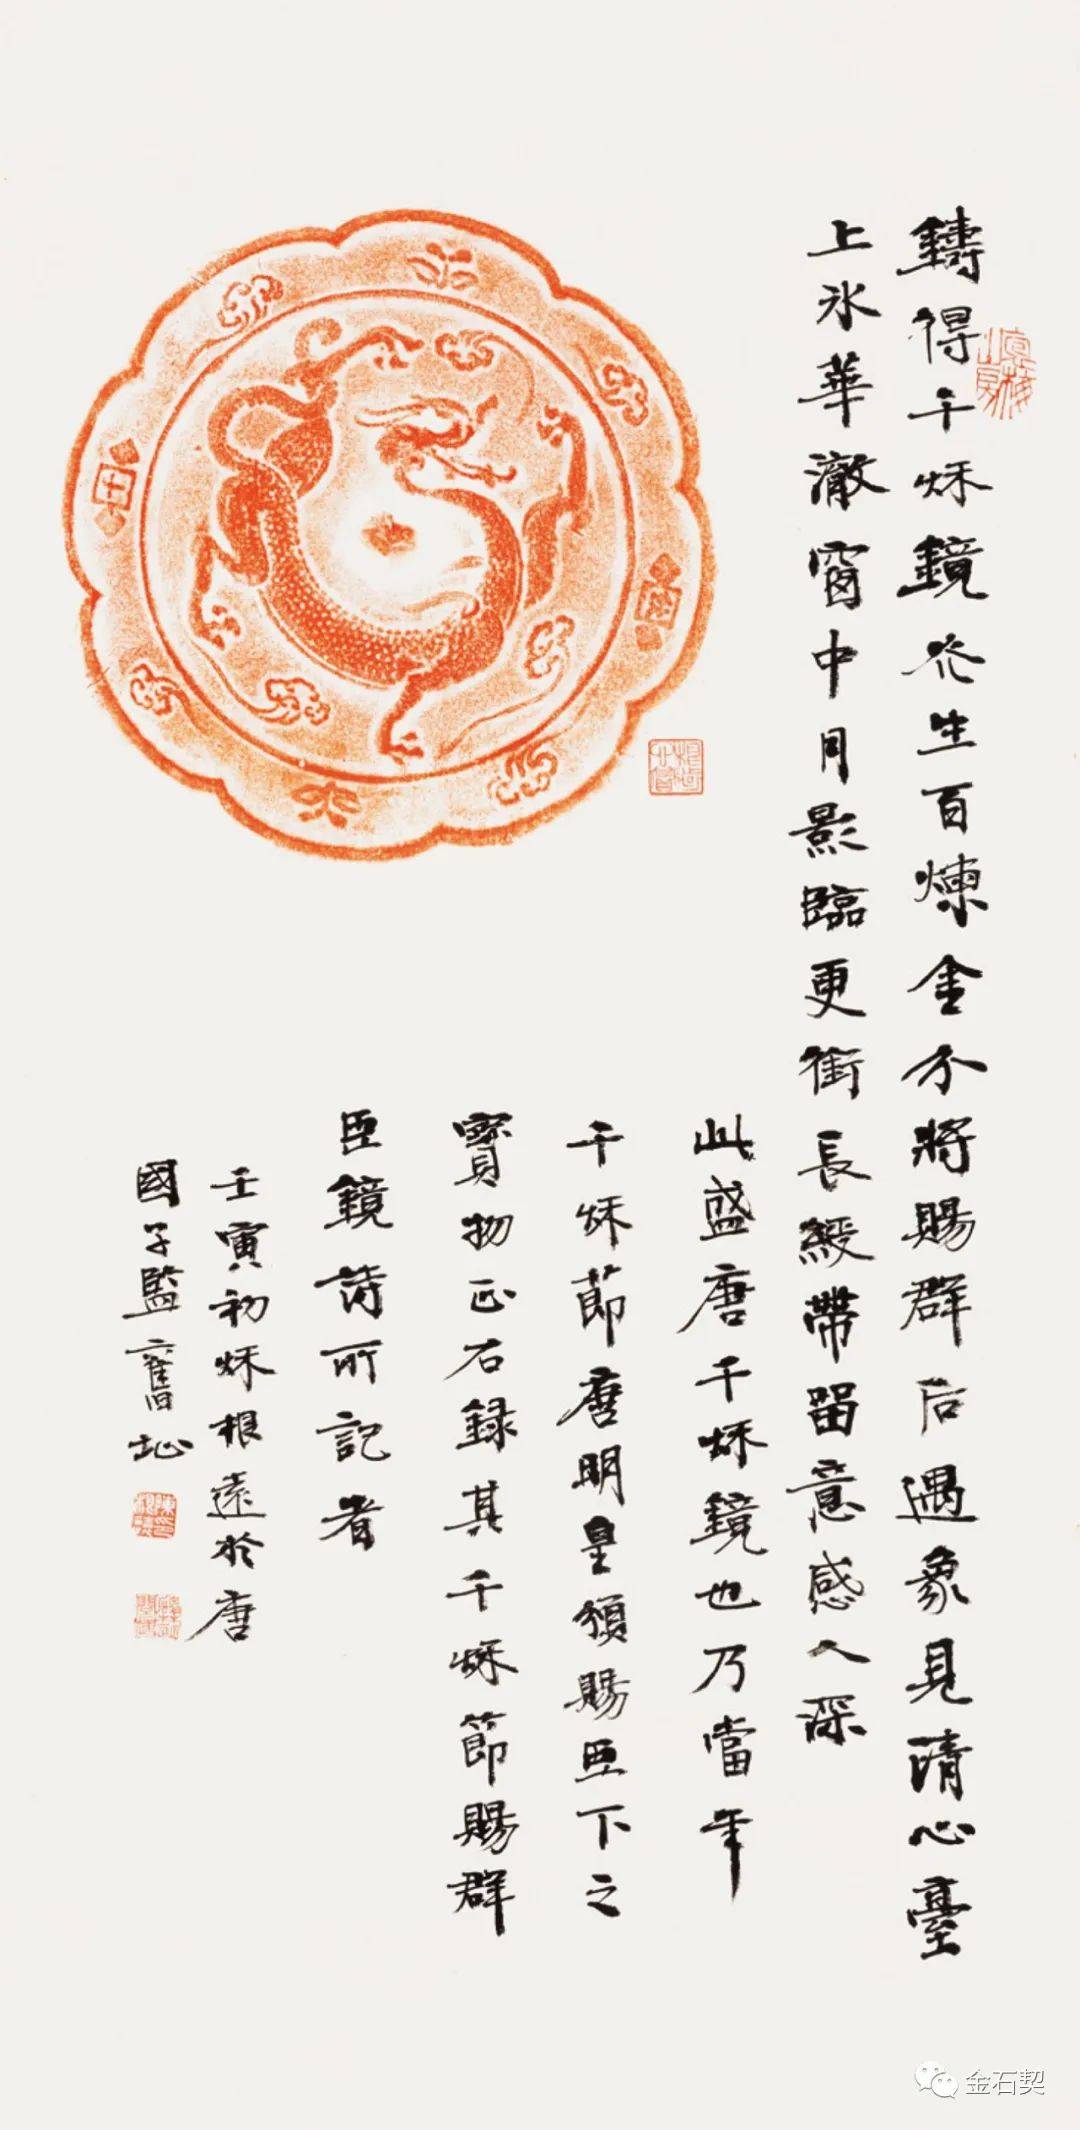 鑄得千秌鏡光生百煉金分將賜群后遇象見清心臺
上氷華澈窗中月影臨更銜長綬帶留意感人深
此盛唐千秌鏡也乃當年
千秌節唐明皇頒賜臣下之
寶物正右錄其千秌節賜群
臣鏡詩所記者
壬寅初秌根遠於唐
國子監舊址
金石契